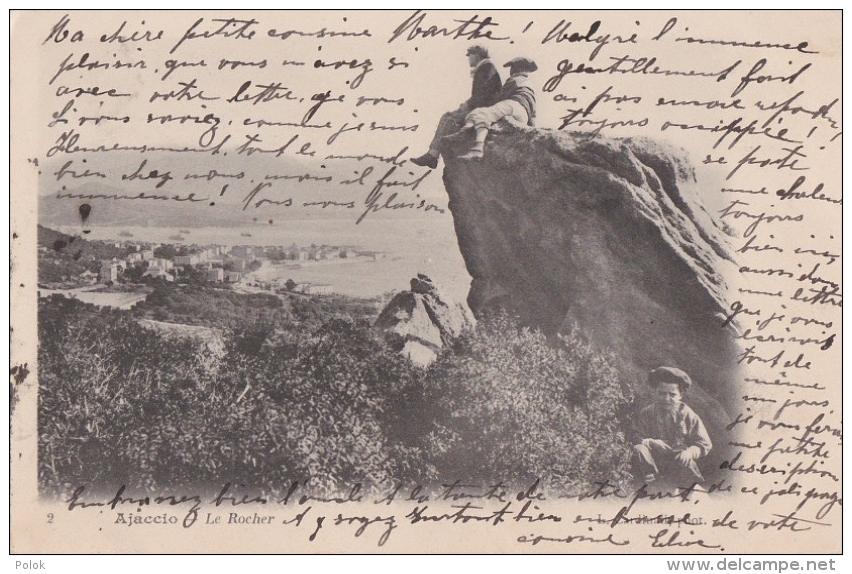 Ma chère petite cousine Marthe !
plaisir, que vous m'avez si
avec votre lettre, je vous
si vous saviez, comme je suis
Heureusement, tout le monde
bien chez nous, mais il fait
immense ! Vous nous plaisons
Malgré l'immense
gentillement fait
ai pas encore répondu,
toujours occuppée !
se porte
une chaleur
toujours
bien ici,
aussi dans
une lettre
que je vous
écrivais
tout de
même
un jour,
je vous ferai
une petite
description
de ce joli pays
Embrassez bien l'oncle et la tante de notre part
et soyez surtout bien embrassée de votre
cousine Elise.
2 Ajaccio Le Rocher
L. Cardinali phot.
Polok
www.delcampe.net